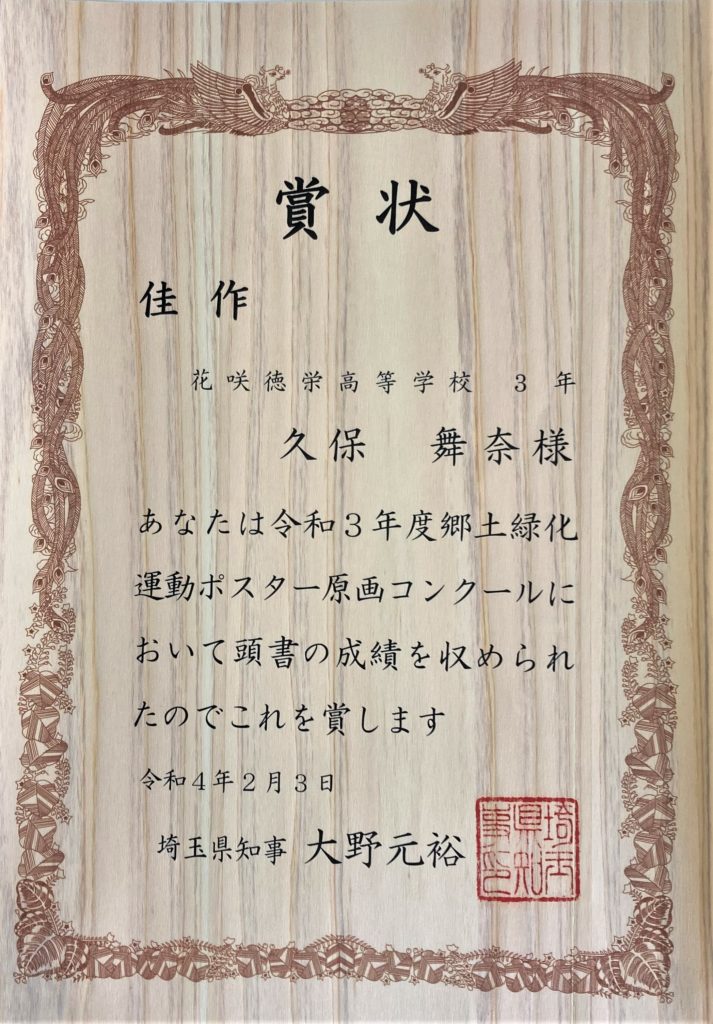 賞状
佳作
花咲徳栄高等学校 3年
久保 舞奈様
あなたは令和3年度郷土緑化
運動ポスター原画コンクールに
おいて頭書の成績を収められ
たのでこれを賞します
令和4年2月3日
埼玉県知事 大野元裕
埼玉県知事印